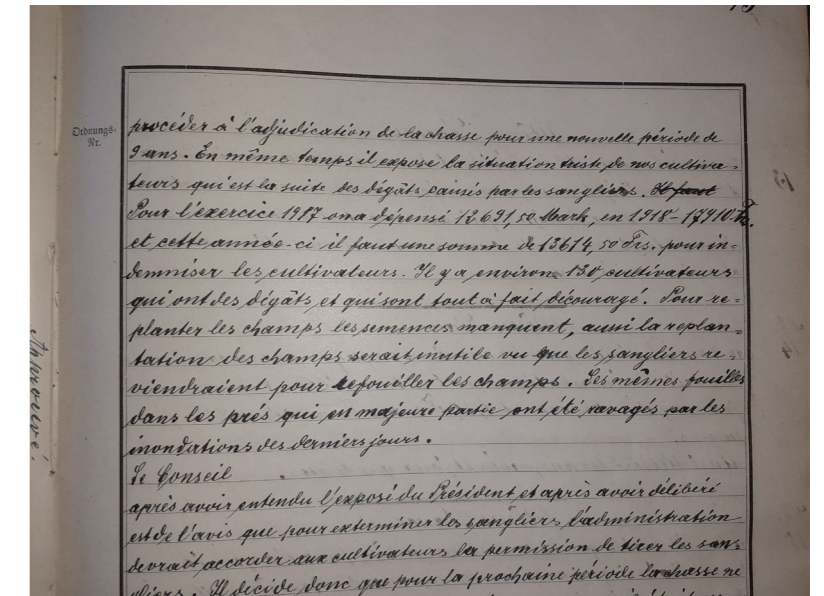 Ordnungs-
Nr.
procéder à l'adjudication de la chasse pour une nouvelle période de
9 ans. En même temps il expose la situation triste de nos cultiva-
teurs qui est la suite des dégâts causés par les sangliers. Il faut
Pour l'exercice 1917 on a dépensé 12691,50 Mark, en 1918 - 17910 Frs.
et cette année-ci il faut une somme de 13614,50 Frs. pour in-
demniser les cultivateurs. Il y a environ 130 cultivateurs
qui ont des dégâts et qui sont tout à fait découragé. Pour re-
planter les champs les semences manquent, aussi la replan-
tation des champs serait inutile vu que les sangliers re-
viendraient pour refouiller les champs. Les mêmes fouilles
dans les prés qui en majeure partie ont été ravagés par les
inondations des derniers jours.
Le Conseil
après avoir entendu l'exposé du Président et après avoir délibéré
est de l'avis que pour exterminer les sangliers l'administration
devrait accorder aux cultivateurs la permission de tirer les san-
gliers. Il décide donc que pour la prochaine période la chasse ne
Approuvé.